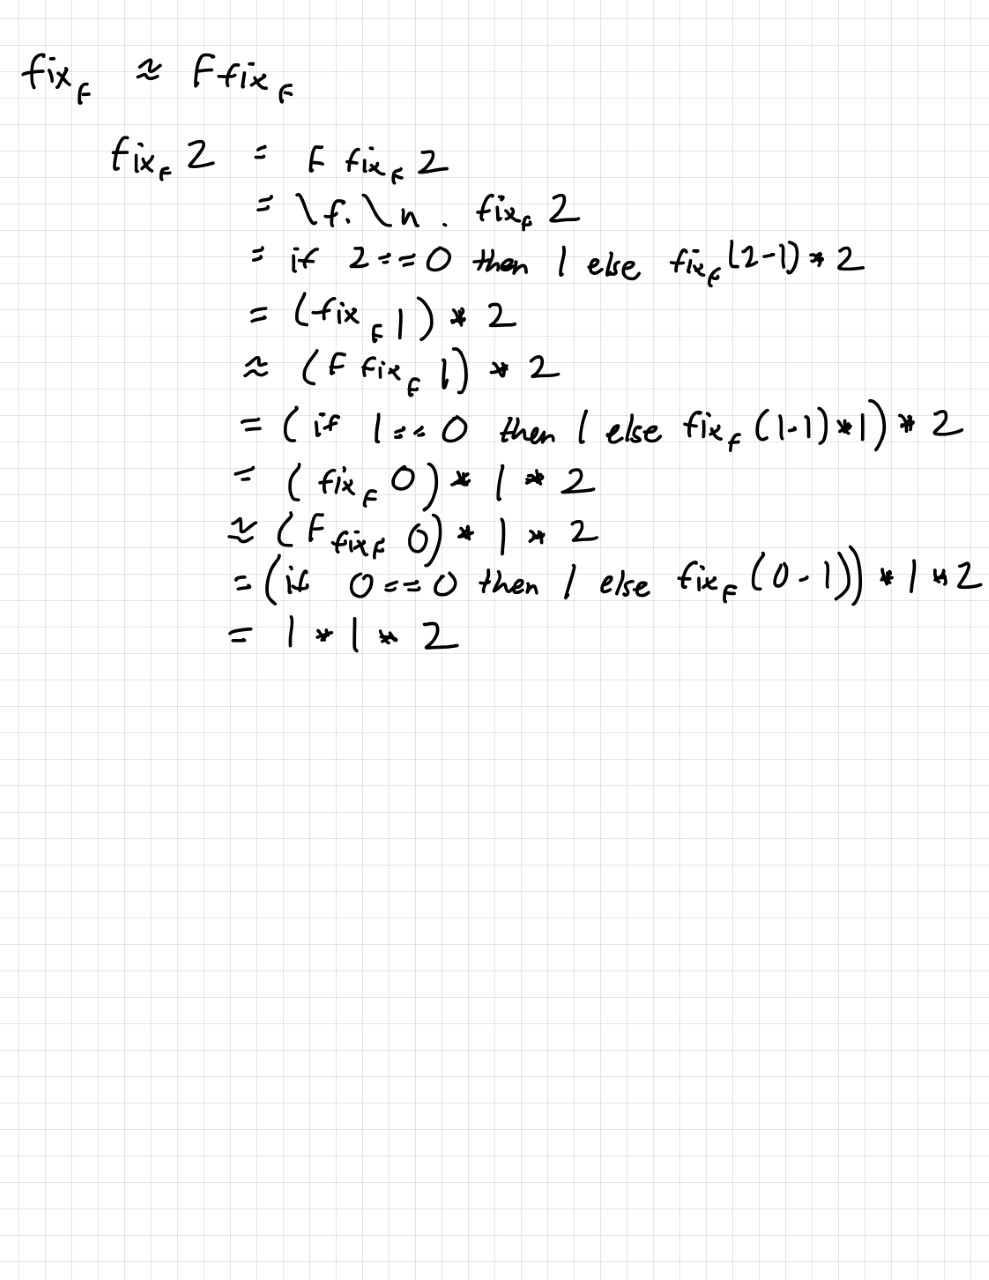 fix_F ≈ F fix_F
fix_F 2 = F fix_F 2
= \f. \n . fix_F 2
= if 2 == 0 then 1 else fix_F (2-1) * 2
= (fix_F 1) * 2
≈ (F fix_F 1) * 2
= (if 1 == 0 then 1 else fix_F (1-1) * 1) * 2
= (fix_F 0) * 1 * 2
≈ (F fix_F 0) * 1 * 2
= (if 0 == 0 then 1 else fix_F (0-1)) * 1 * 2
= 1 * 1 * 2